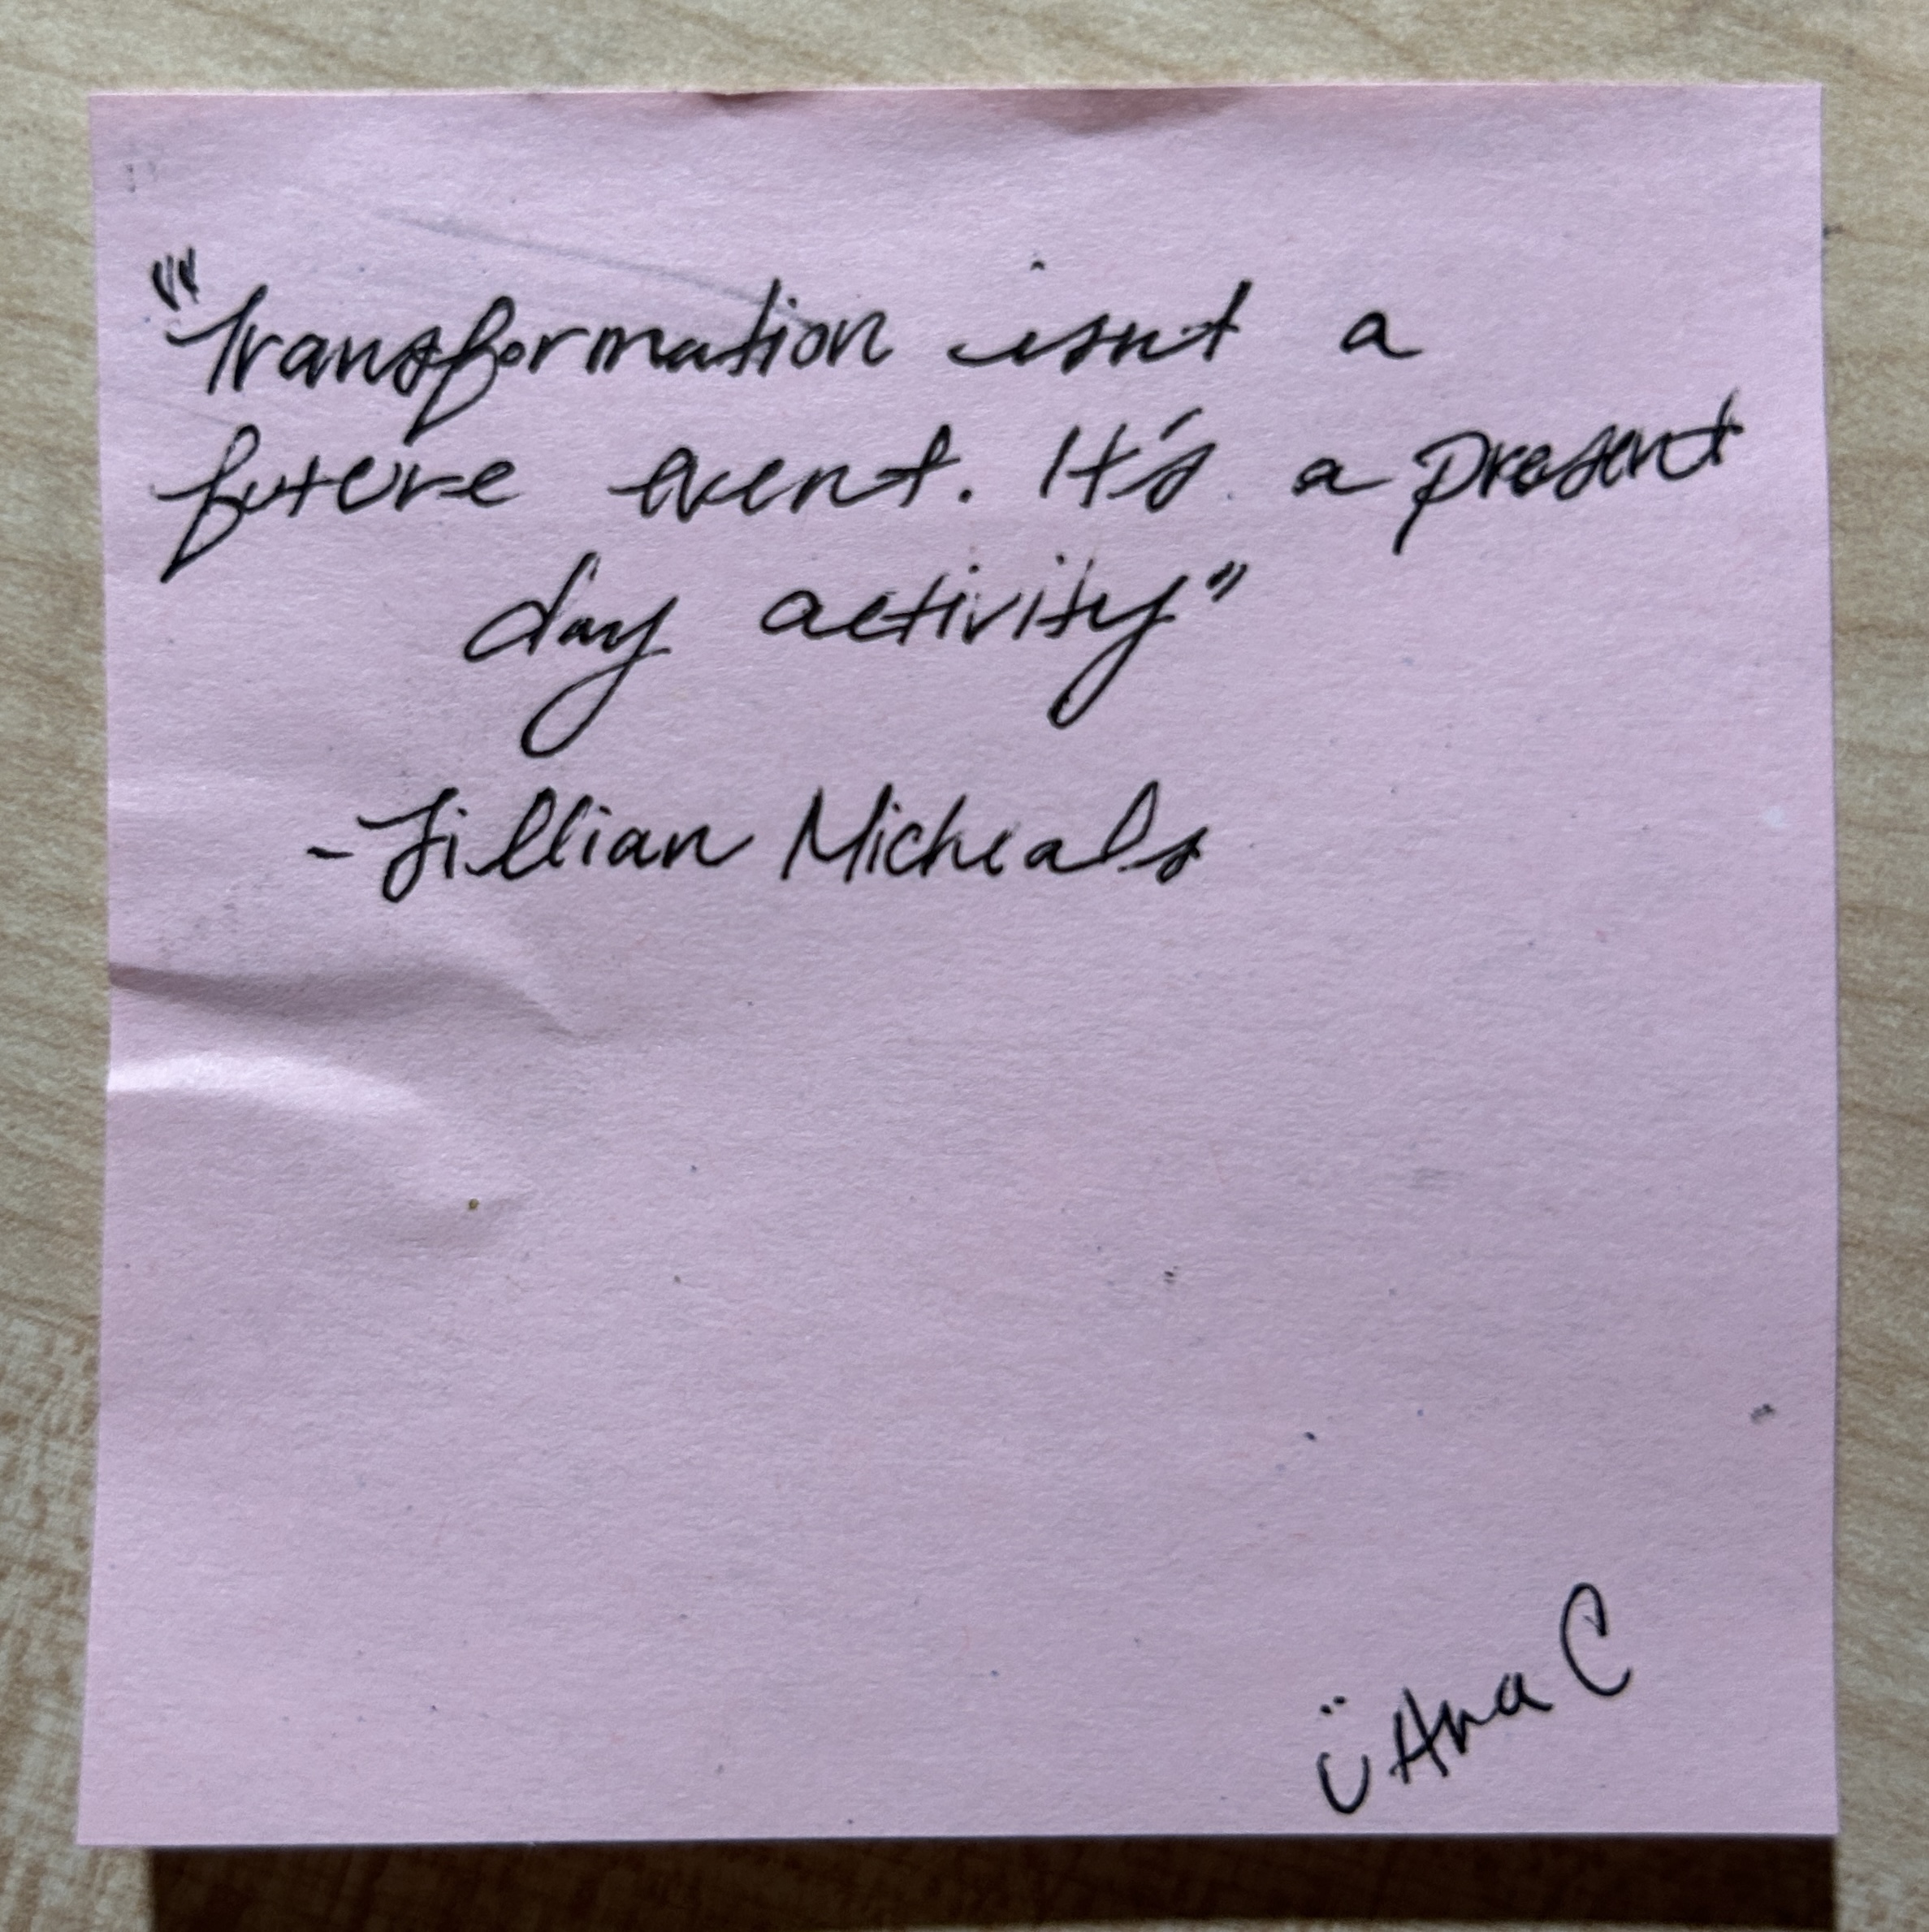 "Transformation isnt a
future event. It's a present
day activity"
- Jillian Micheals
Ana C